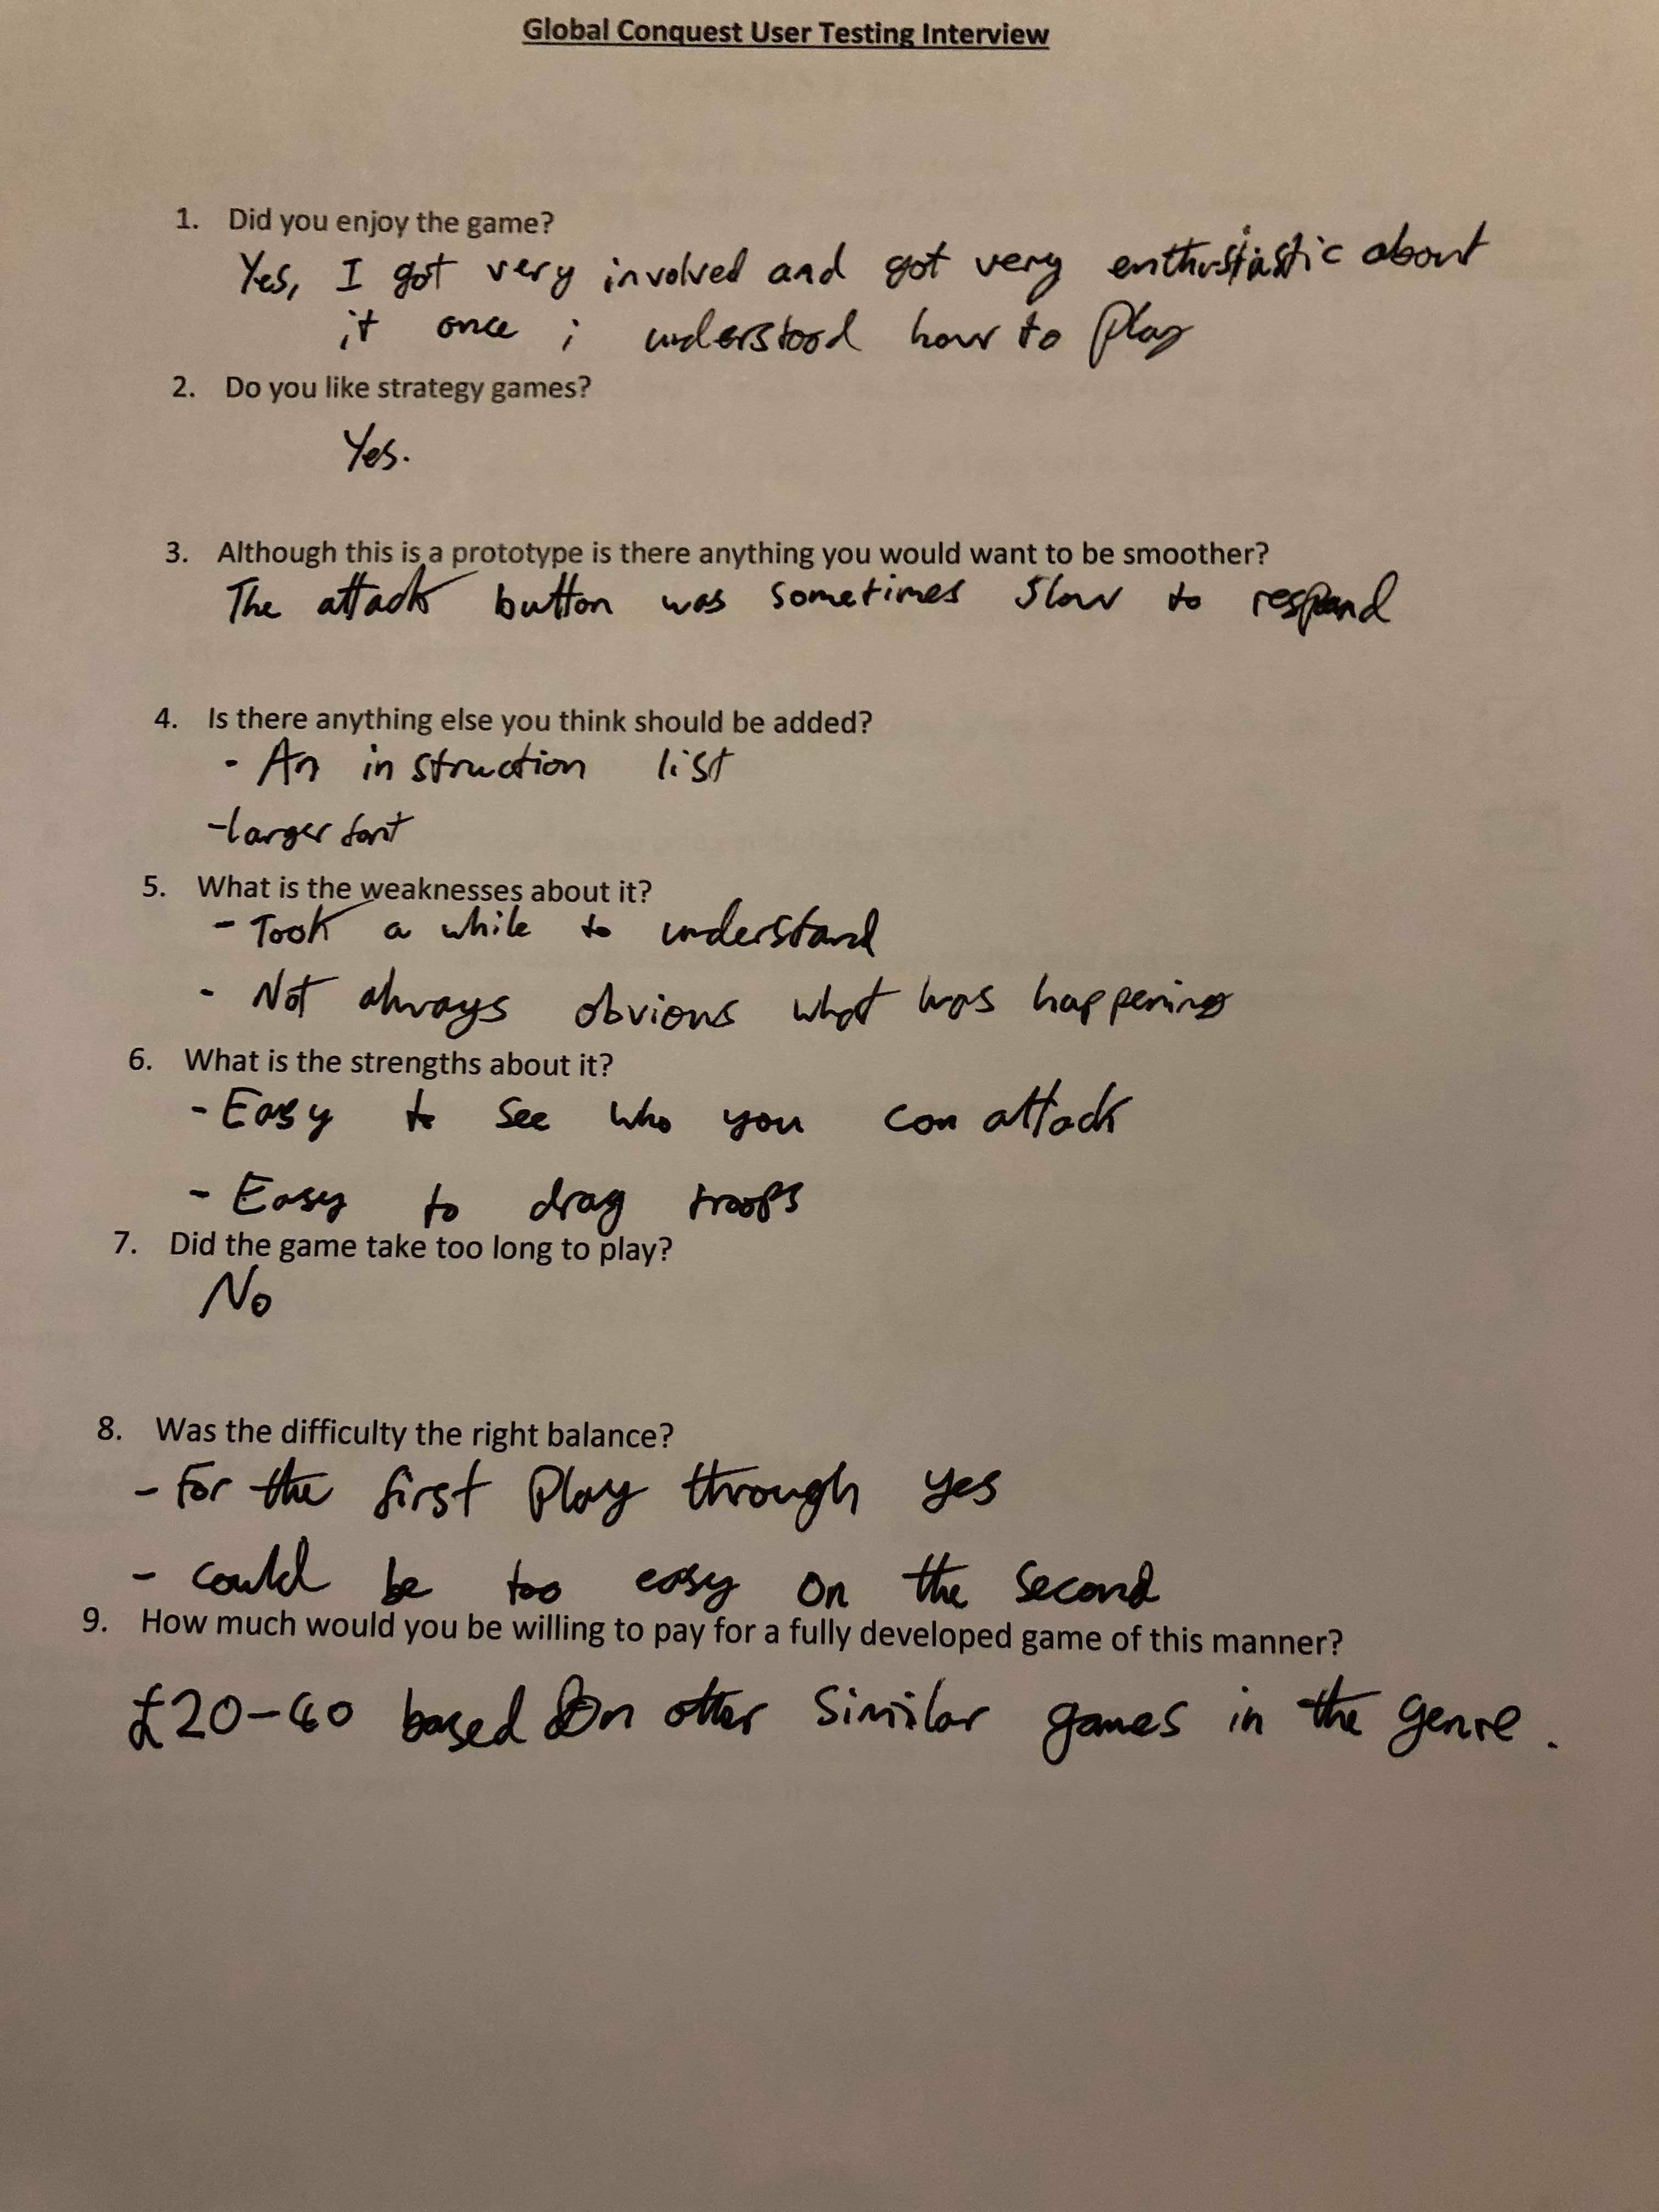 Global Conquest User Testing Interview
1. Did you enjoy the game?
Yes, I got very involved and got very enthustiastic about
it once i understood how to play
2. Do you like strategy games?
Yes.
3. Although this is a prototype is there anything you would want to be smoother?
The attack button was sometimes slow to respond
4. Is there anything else you think should be added?
- An instruction list
- larger font
5. What is the weaknesses about it?
- Took a while to understand
- Not always obvious what was happening
6. What is the strengths about it?
- Easy to see who you can attack
- Easy to drag troops
7. Did the game take too long to play?
No
8. Was the difficulty the right balance?
- For the first play through yes
- could be too easy on the second
9. How much would you be willing to pay for a fully developed game of this manner?
£20-40 based on other similar games in the genre.